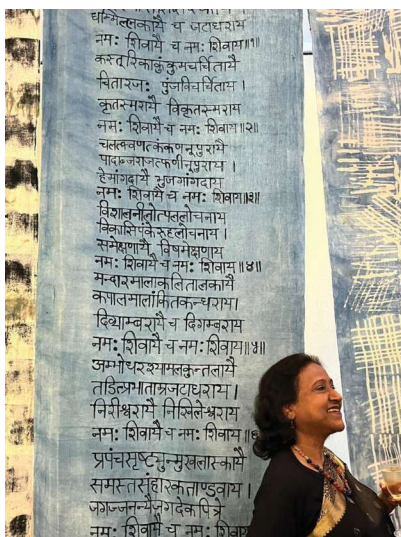 धम्मिल्लकायै च जटाधराय
नमः शिवायै च नमः शिवाय॥१॥
कस्तूरिकाकुंकुमचर्चितायै
चितारजः पुंजविचर्चिताय।
कृतस्मरायै विकृतस्मराय
नमः शिवायै च नमः शिवाय॥२॥
चलत्क्वणत्कंकणनूपुरायै
पादाब्जराजत्फणीनूपुराय।
हेमांगदायै भुजगांगदाय
नमः शिवायै च नमः शिवाय॥३॥
विशालनीलोत्पललोचनाय
विकासिपंकेरुहलोचनाय।
समेक्षणायै विषमेक्षणाय
नमः शिवायै च नमः शिवाय॥४॥
मन्दारमालाकलितालकायै
कपालमालांकितकन्धराय।
दिव्याम्बरायै च दिगम्बराय
नमः शिवायै च नमः शिवाय॥५॥
अम्भोधरश्यामलकुन्तलायै
तडित्प्रभाताम्रजटाधराय।
निरीश्वरायै निखिलेश्वराय
नमः शिवायै च नमः शिवाय॥६
प्रपंचसृष्ट्युन्मुखलास्कायै
समस्तसंहारकताण्डवाय।
जगज्जनन्यै जगदेकपित्रे
नमः शिवायै च नमः शिवाय